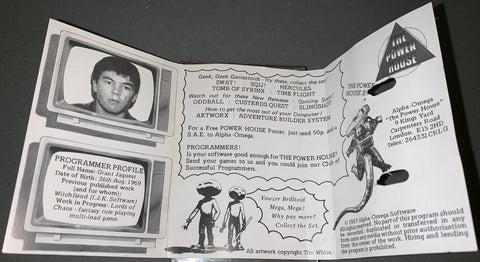 PROGRAMMER PROFILE
Full Name: Grant Jaquest
Date of Birth: 26th Aug. 1969
Previous published work
(and for whom):
Witchfiend (I.J.K. Software)
Work in Progress: Lords of
Chaos - fantasy role playing
multi-load game.
Geek, Geek Gamestoids - try these, collect the set!
SWAT! : SQIJ! : HERCULES
TOMB OF SYRINX : TIME FLIGHT
Watch out for these New Releases - Coming Soon!
ODDBALL : CUSTERDS QUEST : SLINGSHOT
How to get the most out of your Computer!
ARTWORX : ADVENTURE BUILDER SYSTEM
For a Free POWER HOUSE Poster, just send 50p, and a
S.A.E. to Alpha-Omega.
PROGRAMMERS!
Is your software good enough for THE POWER HOUSE?
Send your games to us and you could join our Club of
Successful Programmers.
Yowzer Brilltoid
Mega, Mega!
Why pay more?
Collect the Set.
All artwork copyright Tim White.
THE
POWER
HOUSE
THE POWER
HOUSE
Alpha-Omega
"The Power House"
9 Kings Yard
Carpenters Road
London. E15 2HD
Telex: 264331CRLG
© 1987 Alpha-Omega Software
All rights reserved. No part of this program should
be recorded, duplicated or transferred in any
form onto any media without prior authorisation
from the owner of the work. Hiring and lending
the program is prohibited.